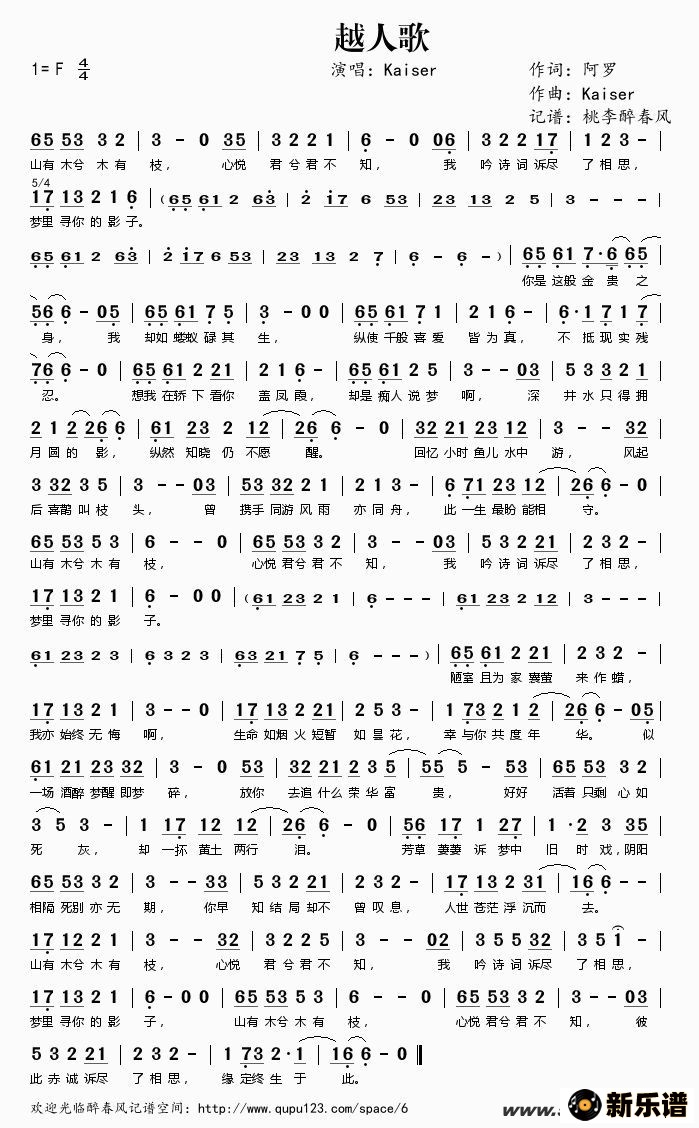 越人歌
1= F 4/4 演唱：Kaiser 作词：阿罗
作曲：Kaiser
记谱：桃李醉春风
65 53 3 2 | 3 - 0 35 | 3 2 2 1 | 6 - 0 06 | 3 2 2 17 | 1 2 3 - |
山有木兮 木 有 枝， 心悦 君 兮 君 不 知， 我 吟 诗 词 诉尽 了 相思，
5/4
17 13 2 1 6 | (65 61 2 63 | 2 17 6 53 | 23 13 2 5 | 3 - - - |
梦里 寻你 的 影 子。
65 61 2 63 | 2 17 6 53 | 23 13 2 7 | 6 - 6 - ) | 65 61 7·6 65 |
你是 这般 金 贵 之
56 6 - 05 | 65 61 7 5 | 3 - 0 0 | 65 61 7 1 | 2 1 6 - | 6·1 7 1 7 |
身， 我 却如 蝼蚁 碌 其 生， 纵使 千般 喜 爱 皆 为 真， 不 抵 现 实 残
76 6 - 0 | 65 61 2 21 | 2 1 6 - | 65 61 2 2 | 3 - - 03 | 5 3 32 1 |
忍。 想我 在轿 下 看你 盖 凤 霞， 却是 痴人 说 梦 啊， 深 井 水 只得 拥
2 1 2 26 6 | 61 23 2 12 | 26 6 - 0 | 32 21 23 12 | 3 - - 32 |
月 圆 的 影， 纵然 知晓 仍 不愿 醒。 回忆 小时 鱼儿 水中 游， 风起
3 32 3 5 | 3 - - 03 | 53 32 2 1 | 2 1 3 - | 6 71 23 12 | 26 6 - 0 |
后 喜鹊 叫 枝 头， 曾 携手 同游 风 雨 亦 同 舟， 此 一生 最盼 能相 守。
65 53 5 3 | 6 - - 0 | 65 53 3 2 | 3 - - 03 | 5 3 2 21 | 2 3 3 - |
山有 木兮 木 有 枝， 心悦 君兮 君 不 知， 我 吟 诗 词 诉尽 了 相 思，
17 13 2 1 | 6 - 0 0 | (61 23 2 1 | 6 - - - | 61 23 2 1 | 3 - - - |
梦里 寻你 的 影 子。
61 23 2 3 | 6 3 2 3 | 63 21 7 5 | 6 - - - ) | 65 61 2 21 | 2 3 2 - |
陋室 且为 家 囊萤 来 作 蜡，
17 13 2 1 | 3 - - 0 | 17 13 2 21 | 2 3 2 - | 1 73 2 1 2 | 26 6 - 05 |
我亦 始终 无 悔 啊， 生命 如烟 火 短暂 如 昙 花， 幸 与你 共 度 年 华。 似
61 21 2 3 | 3 - - 53 | 32 21 2 3 5 | 55 5 - 53 | 65 53 3 2 |
一场 酒醉 梦醒 即梦 碎， 放你 去追 什么 荣 华 富 贵， 好好 活着 只剩 心 如
3 5 3 - | 1 17 12 12 | 26 6 - 0 | 56 17 1 27 | 1·2 3 35 |
死 灰， 却 一抔 黄土 两行 泪。 芳草 萋萋 诉 梦中 旧 时 戏，阴阳
65 53 3 2 | 3 - - 33 | 5 3 2 21 | 2 3 2 - | 17 13 2 31 | 16 6 - - |
相隔 死别 亦 无 期， 你早 知 结 局 却不 曾 叹 息， 人世 苍茫 浮 沉而 去。
17 12 2 1 | 3 - - 32 | 3 2 2 5 | 3 - - 02 | 3 5 5 53 | 3 5 1 - |
山有 木兮 木 有 枝， 心悦 君 兮 君 不 知， 我 吟 诗 词 诉尽 了 相 思，
17 13 2 1 | 6 - - 0 | 65 53 5 3 | 6 - - 0 | 65 53 3 2 | 3 - - 03 |
梦里 寻你 的 影 子， 山有 木兮 木 有 枝， 心悦 君兮 君 不 知， 彼
5 3 2 21 | 2 3 3 - | 1 73 2·1 | 16 6 - 0 ‖
此 赤 诚 诉尽 了 相 思， 缘 定终 生 于 此。
欢迎光临醉春风记谱空间：http://www.qupu123.com/space/6 www. 新乐谱